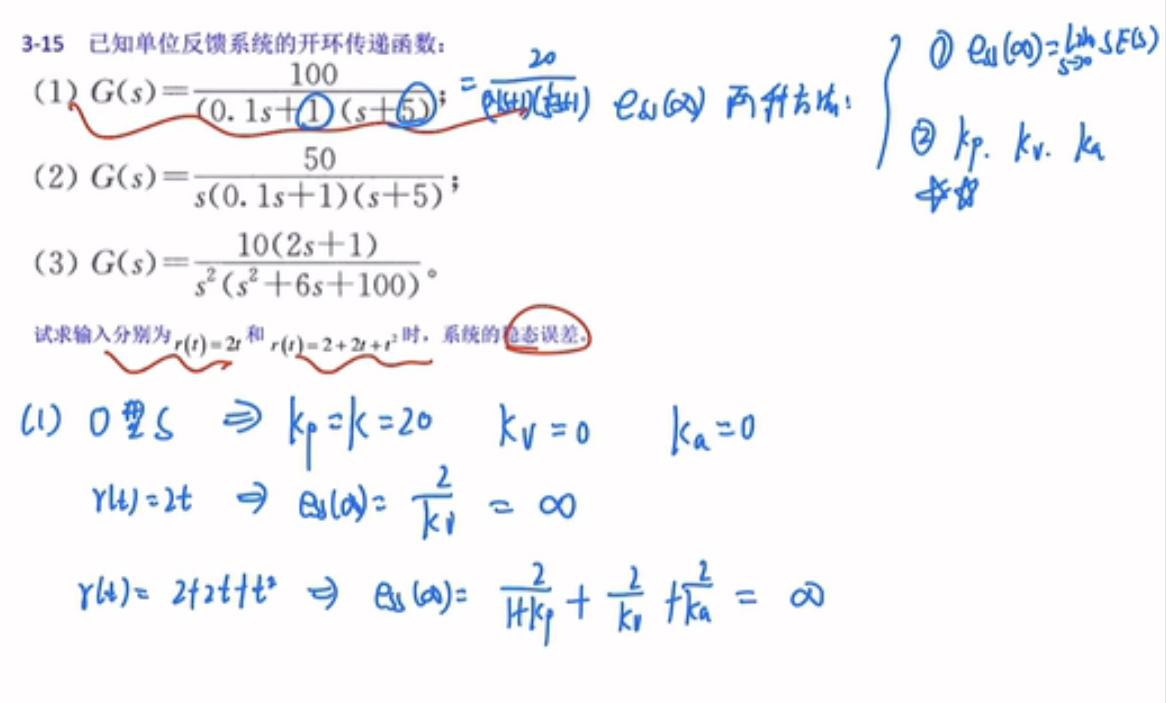 3-15 已知单位反馈系统的开环传递函数：
(1) G(s)=100/((0.1s+1)(s+5)); = 20/((0.1s+1)(1/5s+1)) ess(∞) 两种方法：
① ess(∞)=lim s→0 SE(s)
② kp. kv. ka
☆☆
(2) G(s)=50/(s(0.1s+1)(s+5));
(3) G(s)=10(2s+1)/(s²(s²+6s+100))。
试求输入分别为 r(t)=2t 和 r(t)=2+2t+t² 时，系统的稳态误差。
(1) 0型S ⇒ kp=k=20 kv=0 ka=0
r(t)=2t ⇒ ess(∞)=2/kv = ∞
r(t)=2+2t+t² ⇒ ess(∞)=2/(1+kp)+2/kv+2/ka = ∞